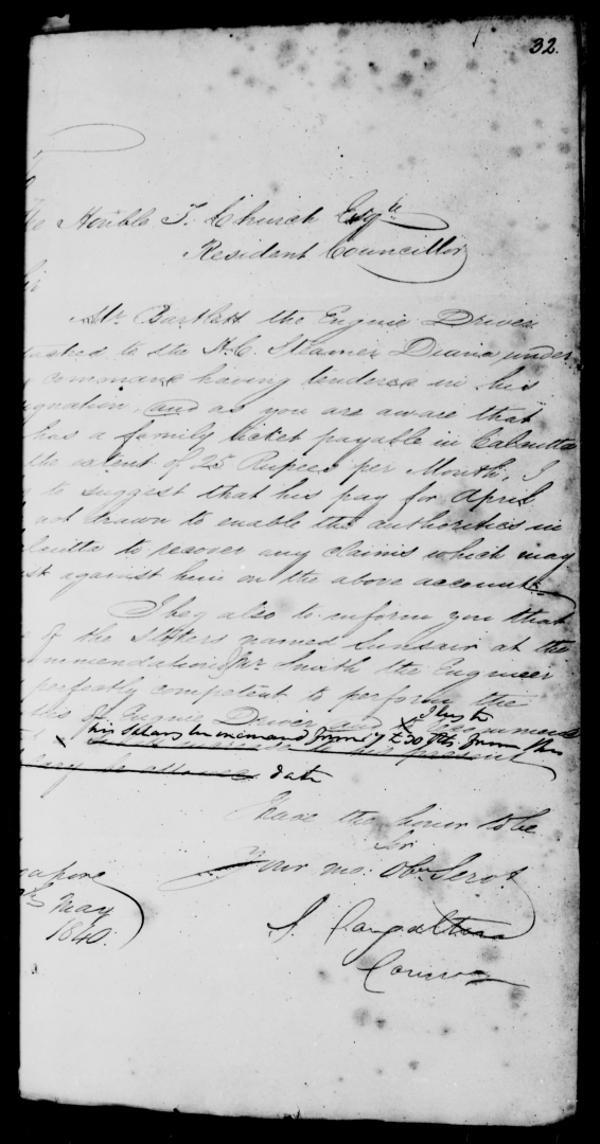 32.
Honble T. Church Esqre
Resident Councillor
Mr Bartlett the Engine Driver
tached to the H.C. Steamer Diana under
command having tendered in his
ignation, and as you are aware that
has a family ticket payable in Calcutta
the extent of 25 Rupees per Month, I
to suggest that his pay for April
not drawn to enable the authorities in
lcutta to recover any claims which may
st against him on the above account.
I beg also to inform you that
of the Stokers named Sunsair at the
mmendation of Mr Smith the Engineer
perfectly competent to perform the
of Engine Driver and
I beg to
his Salary be increased from 17 to 30 from this
date
I have the honor to be
Sir
Your mo: Obt Servt
S.
apore
May
1840.